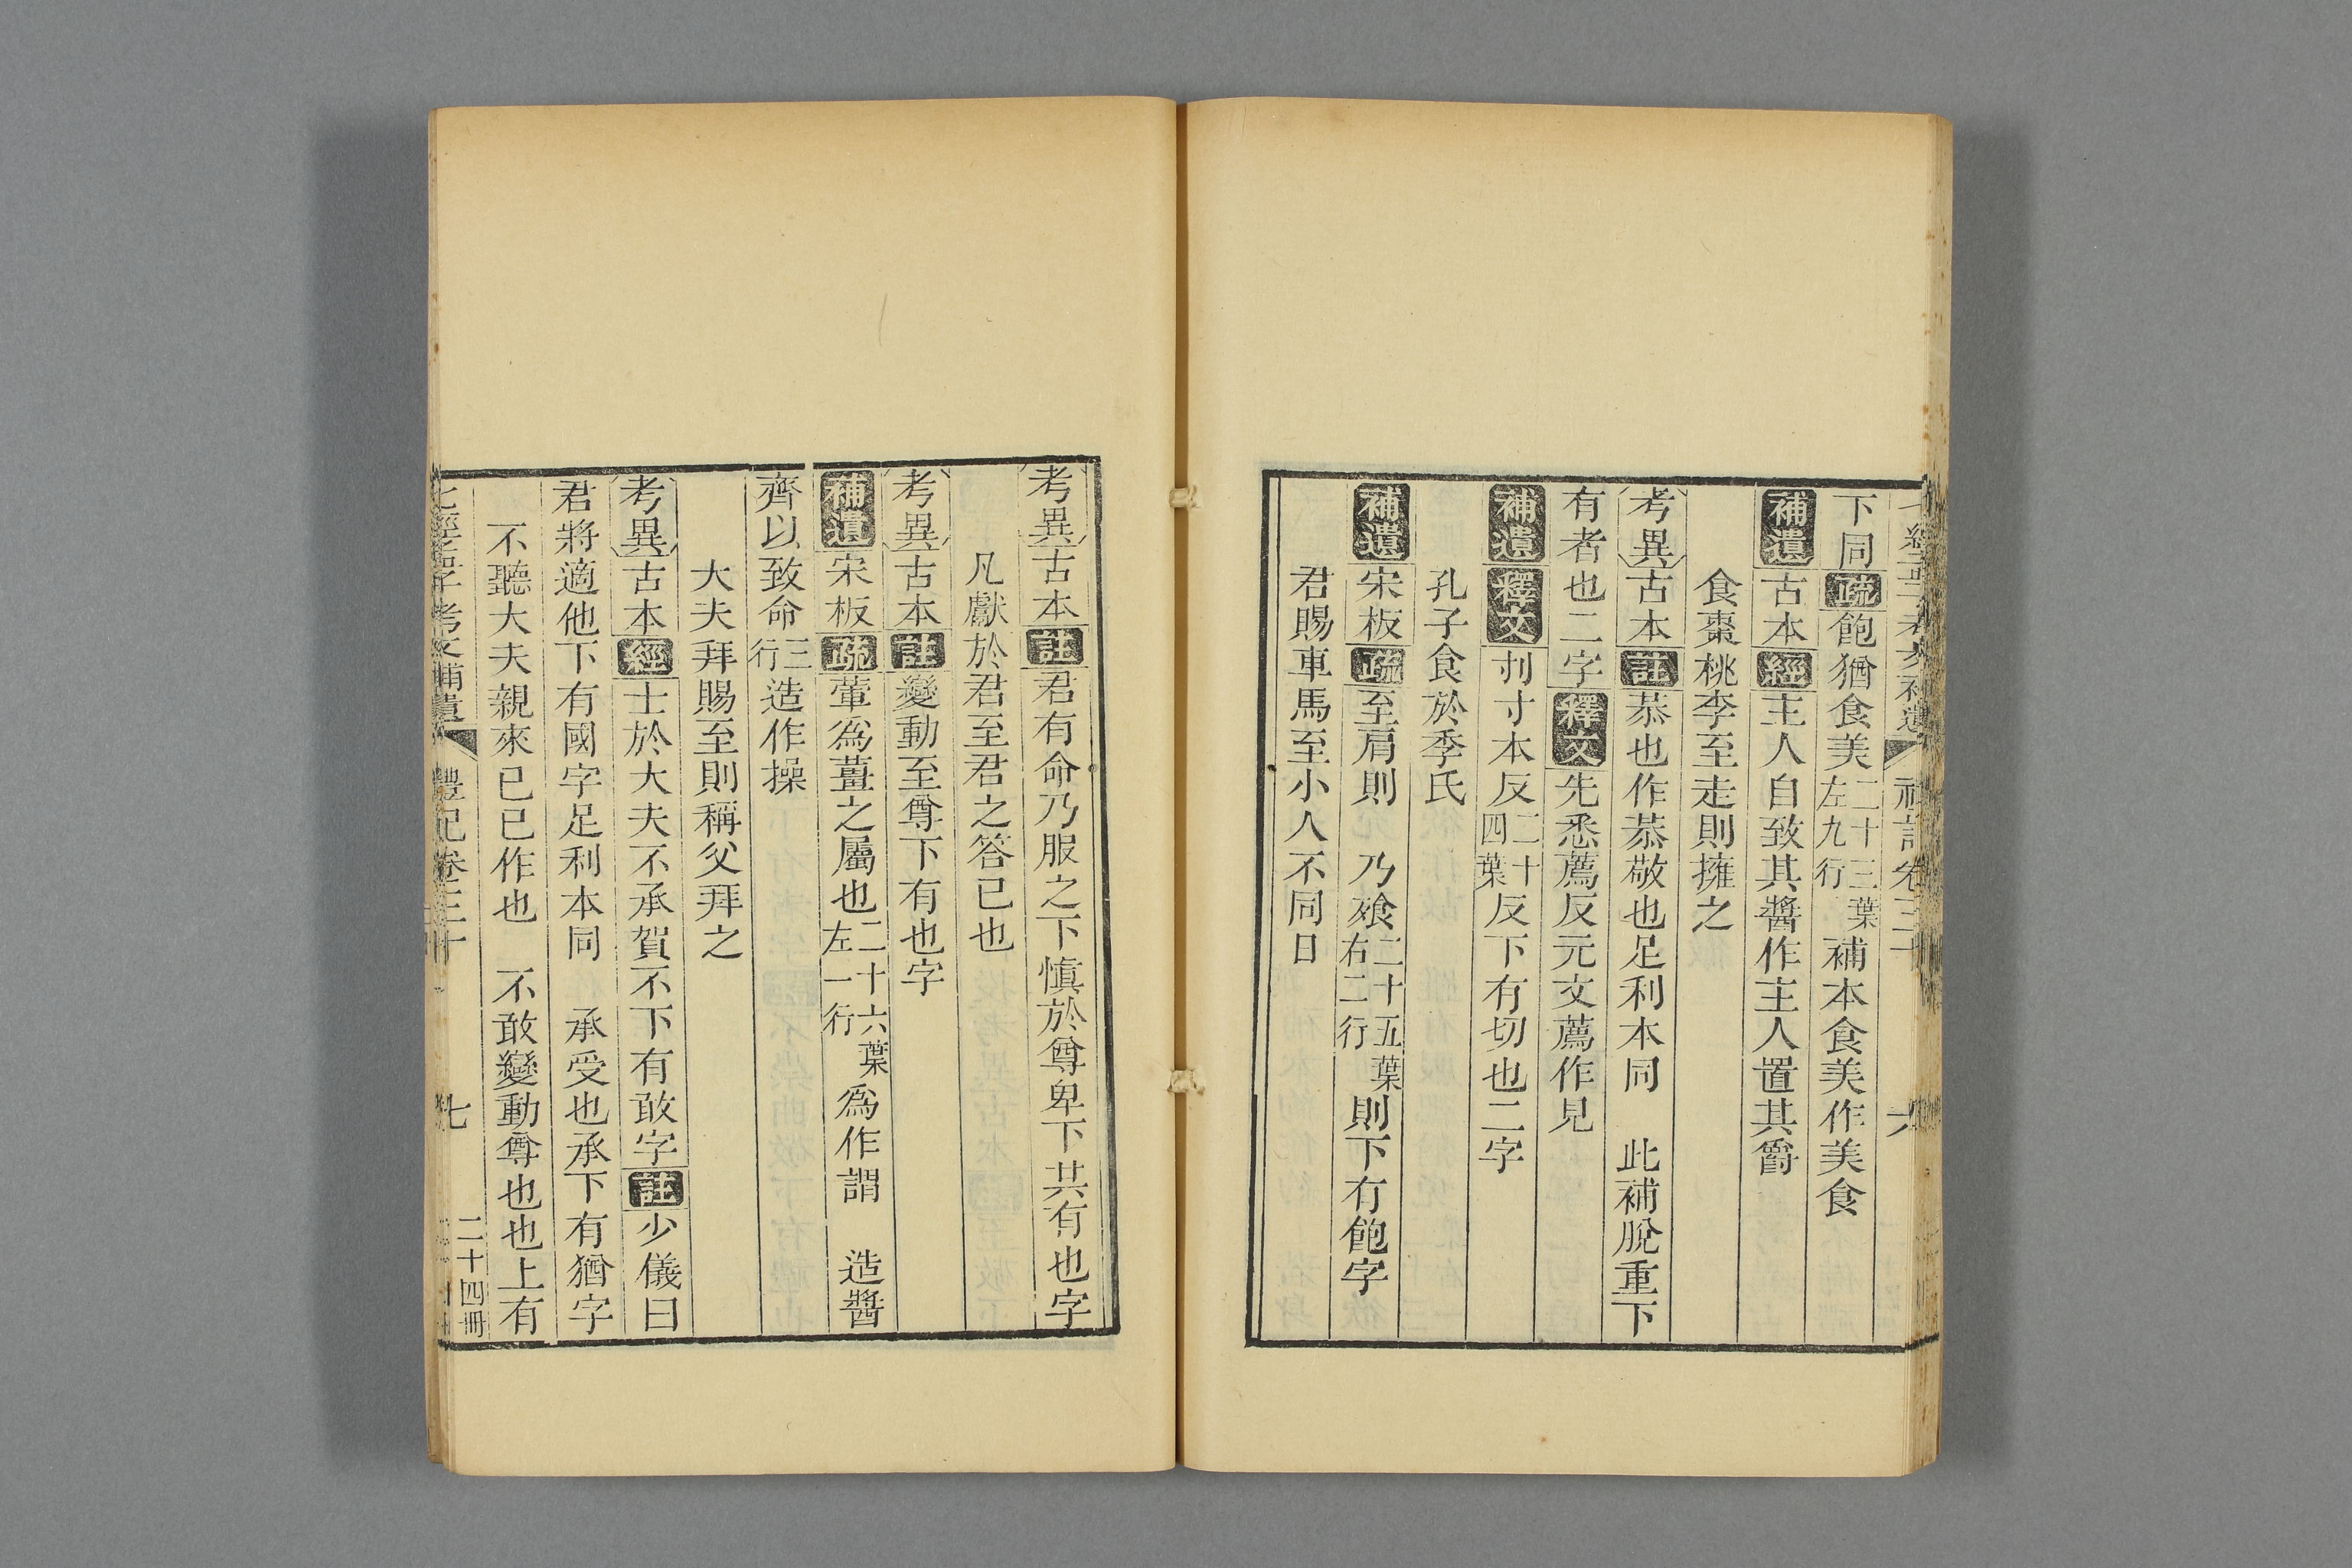 下同疏飽猶食美二十三葉左九行補本食美作美食
補遺古本經主人自致其醬作主人置其爵
食棗桃李至走則擁之
考異古本註恭也作恭敬也足利本同　此補脫重下
有者也二字釋文先悉薦反元文薦作見
補遺釋文刌寸本反二十四葉反下有切也二字
孔子食於季氏
補遺宋板疏至肩則　乃飱二十五葉右二行則下有飽字
君賜車馬至小人不同日
考異古本註君有命乃服之下慎於尊卑下共有也字
凡獻於君至君之答己也
考異古本註變動至尊下有也字
補遺宋板疏葷爲薑之屬也二十六葉左一行爲作謂　造醬
齊以致命三行造作操
大夫拜賜至則稱父拜之
考異古本經士於大夫不承賀不下有敢字註少儀曰
君將適他下有國字足利本同　承受也承下有猶字
不聽大夫親來已已作也　不敢變動尊也也上有
七經孟子考文補遺　禮記卷三十　七　二十四冊